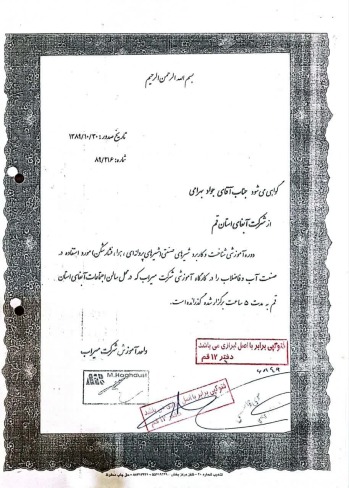 بسم الله الرحمن الرحیم
تاریخ صدور: ۱۳۸۹/۱۰/۳۰
شماره: ۸۹/۳۱۶
گواهی می شود جناب آقای جواد بهرامی
از شرکت آبفای استان قم
دوره آموزشی شناخت و کاربرد شیرهای صنعتی (شیرهای پروانه ای، هوا، فشارشکن) مورد استفاده در
صنعت آب و فاضلاب را در کارگاه آموزشی شرکت میراب که در محل سالن اجتماعات آبفای استان
قم به مدت ۵ ساعت برگزار شده گذرانده است.
فتوکپی برابر با اصل ابرازی می باشد
دفتر ۱۲ قم
واحد آموزش شرکت میراب
M.Haghdust
فتوکپی برابر با اصل